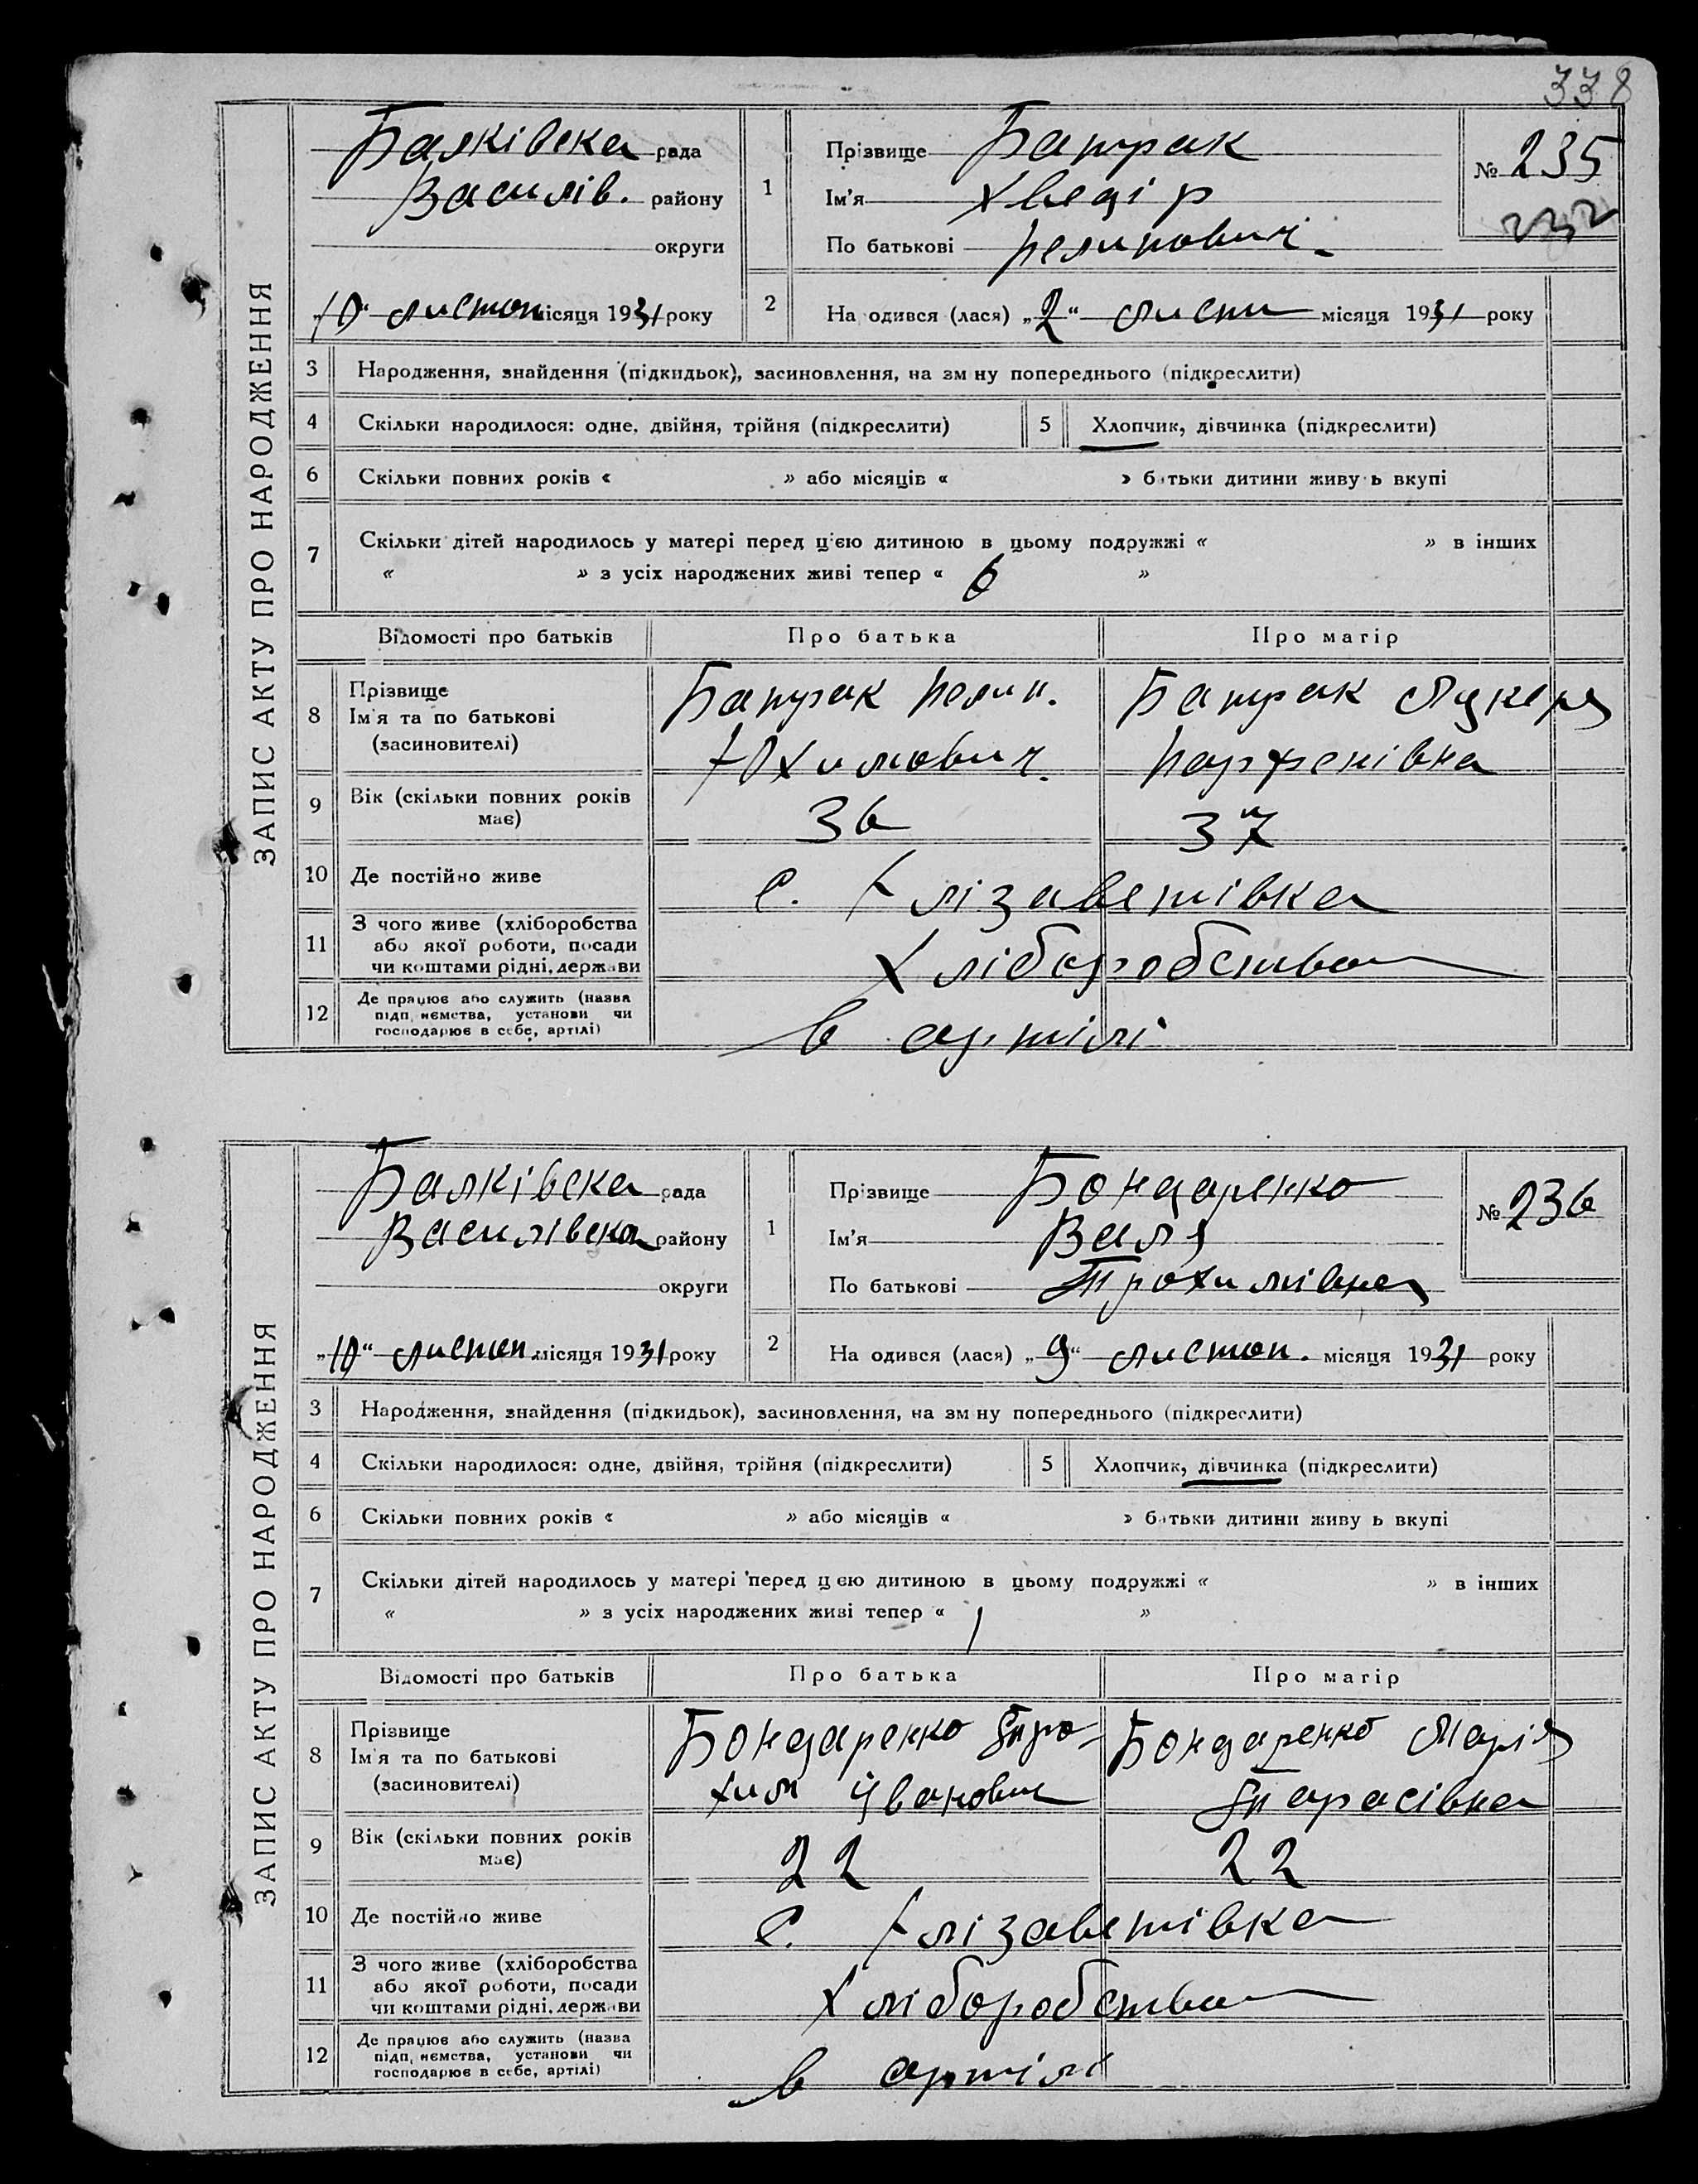 338
ЗАПИС АКТУ ПРО НАРОДЖЕННЯ
Балківска рада
Василів. району
округи
„10“ листоп місяця 1931 року
1
Прізвище Батрак
Ім'я Хведір
По батькові Пелипович
№ 235
232
2
На одився (лася) „2“ листп місяця 1931 року
3 Народження, знайдення (підкидьок), засиновлення, на зм ну попереднього (підкреслити)
4 Скільки народилося: одне, двійня, трійня (підкреслити)
5 Хлопчик, дівчинка (підкреслити)
6 Скільки повних років « » або місяців « » б тьки дитини живу ь вкупі
7 Скільки дітей народилось у матері перед цією дитиною в цьому подружжі « » в інших
« » з усіх народжених живі тепер « 6 »
Відомості про батьків Про батька Про матір
8 Прізвище
Ім'я та по батькові
(засиновителі)
Батрак Пелип.
Юхимович.
Батрак Лукеря
Парфенівна
9 Вік (скільки повних років
має)
36
37
10 Де постійно живе
с. Єлізаветівка
11 З чого живе (хліборобства
або якої роботи, посади
чи коштами рідні, держави
Хліборобства
12 Де працює або служить (назва
підп иємства, установи чи
господарює в себе, артілі)
в артілі
ЗАПИС АКТУ ПРО НАРОДЖЕННЯ
Балківска рада
Василівска району
округи
„10“ листоп місяця 1931 року
1
Прізвище Бондаренко
Ім'я Валя
По батькові Трохимівна
№ 236
2
На одився (лася) „9“ листоп. місяця 1931 року
3 Народження, знайдення (підкидьок), засиновлення, на зм ну попереднього (підкреслити)
4 Скільки народилося: одне, двійня, трійня (підкреслити)
5 Хлопчик, дівчинка (підкреслити)
6 Скільки повних років « » або місяців « » батьки дитини живу ь вкупі
7 Скільки дітей народилось у матері перед ц єю дитиною в цьому подружжі « » в інших
« » з усіх народжених живі тепер « 1 »
Відомості про батьків Про батька Про матір
8 Прізвище
Ім'я та по батькові
(засиновителі)
Бондаренко Тро-
хим Іванович
Бондаренко Марія
Тарасівна
9 Вік (скільки повних років
має)
22
22
10 Де постійно живе
с. Єлізаветівка
11 З чого живе (хліборобства
або якої роботи, посади
чи коштами рідні, держави
Хліборобства
12 Де працює або служить (назва
підп иємства, установи чи
господарює в себе, артілі)
в артілі